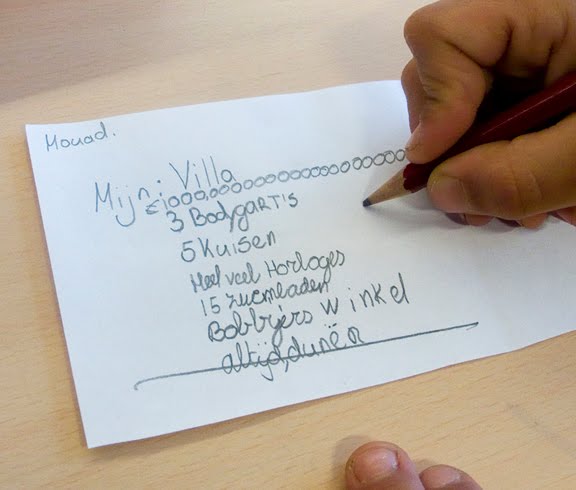 Mouad.
Mijn: Villa
€1000,000000000000000000
3 Bodygartis
5 Kuisen
Heel veel Horloges
15 zwembaden
Bobbyers winkel
altijd, dunër